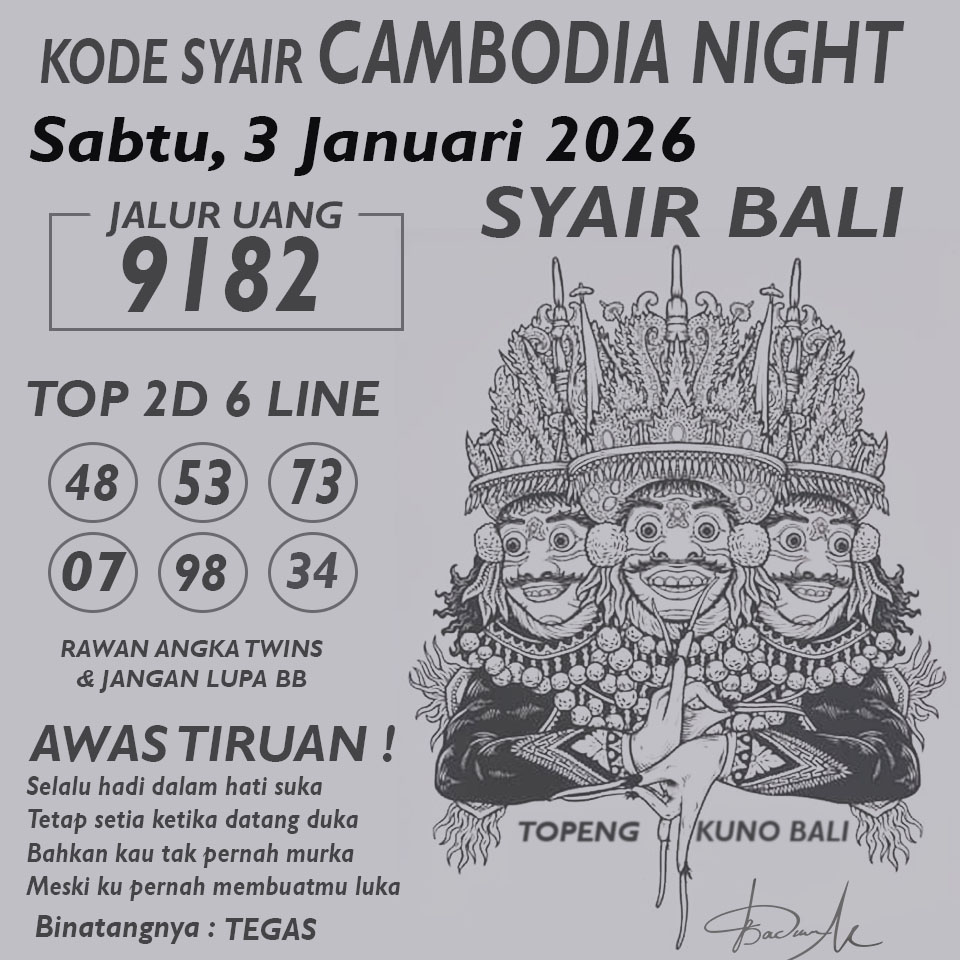 KODE SYAIR CAMBODIA NIGHT
Sabtu, 3 Januari 2026
SYAIR BALI
JALUR UANG
9182
TOP 2D 6 LINE
48 53 73
07 98 34
RAWAN ANGKA TWINS
& JANGAN LUPA BB
AWAS TIRUAN !
Selalu hadi dalam hati suka
Tetap setia ketika datang duka
Bahkan kau tak pernah murka
Meski ku pernah membuatmu luka
Binatangnya : TEGAS
TOPENG KUNO BALI